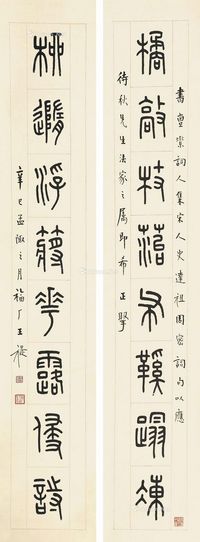 書疆邨詞人集宋人史達祖周密詞句以應
橘敲枝鞵蹋凍
待秋先生法家之屬即希 正擘
柳浮花露侵詩
辛巳孟陬之月福厂王禔